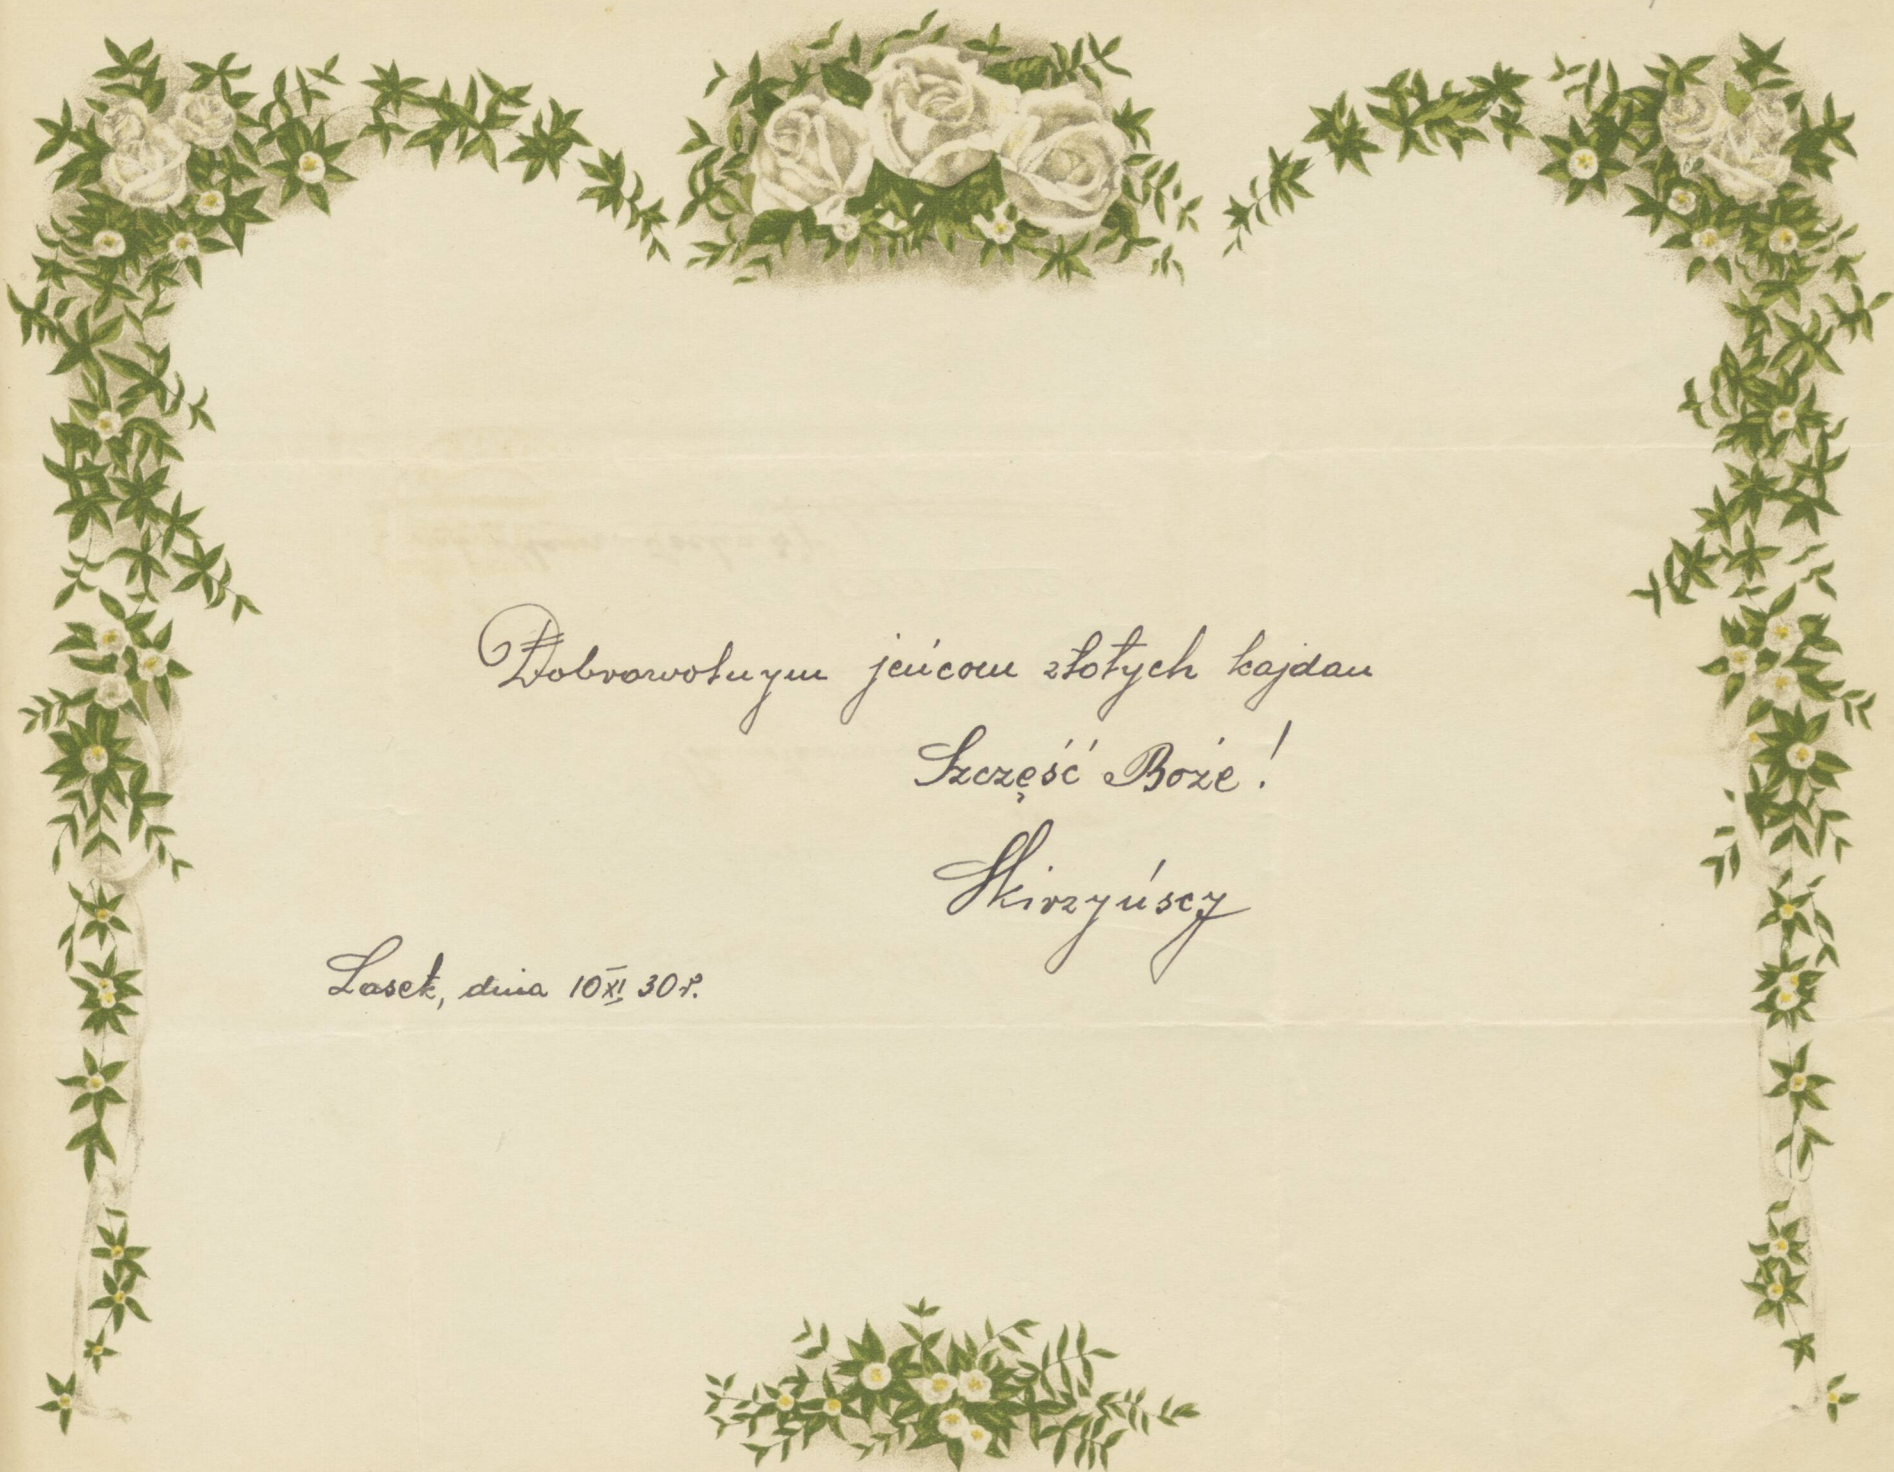 Dobrowolnym jeńcom złotych kajdan
Szczęść Boże!
Skirzyńscy
Lasek, dnia 10 XI 30 r.